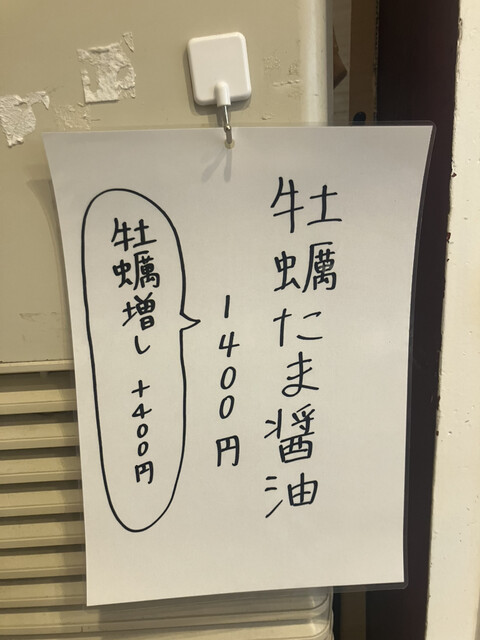 牡蠣たま醤油
1400円
牡蠣増し +400円